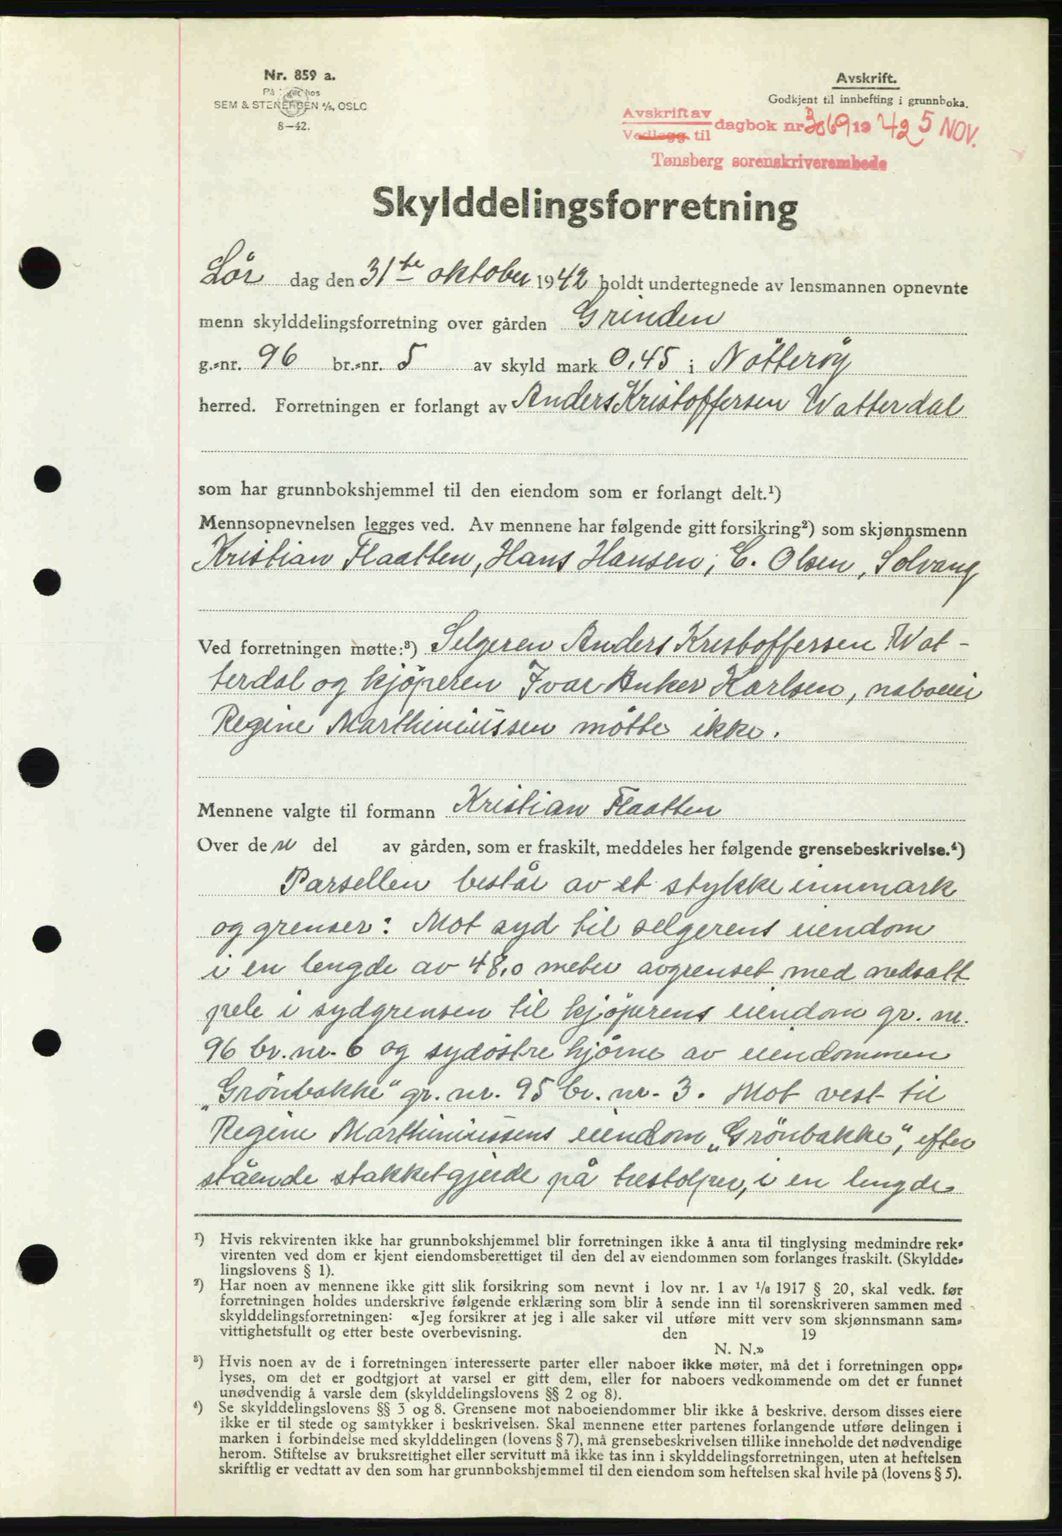 Nr. 859 a.
På
SEM & STENERSEN A/S, OSLO
8—42.
Avskrift.
Godkjent til innhefting i grunnboka.
Avskrift av
Vedlegg til dagbok nr 3069 19 42 5 NOV.
Tønsberg sorenskriverembede
Skylddelingsforretning
Lør dag den 31te oktober 1942 holdt undertegnede av lensmannen opnevnte
menn skylddelingsforretning over gården Grinden
g.-nr. 96 br.-nr. 5 av skyld mark 0,45 i Nötteröy
herred. Forretningen er forlangt av Anders Kristoffersen Watterdal
som har grunnbokshjemmel til den eiendom som er forlangt delt.¹)
Mennsopnevnelsen legges ved. Av mennene har følgende gitt forsikring²) som skjønnsmenn
Kristian Flaatten, Hans Hansen, C. Olsen, Solvang
Ved forretningen møtte:³) Selgeren Anders Kristoffersen Wat-
terdal og kjöperen Ivar Anker Karlsen, naboen
Regine Marthiniussen mötte ikke.
Mennene valgte til formann Kristian Flaatten
Over de n del av gården, som er fraskilt, meddeles her følgende grensebeskrivelse.⁴)
Parsellen består av et stykke innmark
og grenser: Mot syd til selgerens eiendom
i en lengde av 48,0 meter avgrenset med nedsatt
pele i sydgrensen til kjöperens eiendom gr. nr.
96 br. nr. 6 og sydöstre hjörne av eiendommen
„Grönbakke" gr. nr. 95 br. nr. 3. Mot vest til
Regine Marthiniussens eiendom „Grönbakke", efter
stående stakketgjerde på trestolper, i en lengde
¹) Hvis rekvirenten ikke har grunnbokshjemmel blir forretningen ikke å anta til tinglysing medmindre rek-
virenten ved dom er kjent eiendomsberettiget til den del av eiendommen som forlanges fraskilt. (Skyldde-
lingslovens § 1).
²) Har noen av mennene ikke gitt slik forsikring som nevnt i lov nr. 1 av 1/6 1917 § 20, skal vedk. før
forretningen holdes underskrive følgende erklæring som blir å sende inn til sorenskriveren sammen med
skylddelingsforretningen: «Jeg forsikrer at jeg i alle saker vil utføre mitt verv som skjønnsmann sam-
vittighetsfullt og etter beste overbevisning. den 19
N. N.»
³) Hvis noen av de i forretningen interesserte parter eller naboer ikke møter, må det i forretningen opp-
lyses, om det er godtgjort at varsel er gitt dem, eller for naboers vedkommende om det er funnet
unødvendig å varsle dem (skylddelingslovens §§ 2 og 8).
⁴) Se skylddelingslovens §§ 3 og 8. Grensene mot naboeiendommer blir ikke å beskrive, dersom disses eiere
ikke er til stede og samtykker i beskrivelsen. Skal mennene etter partenes forlangende utføre delingen i
marken i forbindelse med skylddelingen (lovens § 7), må grensebeskrivelsen tillike inneholde det nødvendige
herom. Stiftelse av bruksrettighet eller servitutt må ikke tas inn i skylddelingsforretningen, uten at heftelsen
skriftlig er vedtatt av den som har grunnbokshjemmel til den eiendom som heftelsen skal hvile på (lovens § 5).